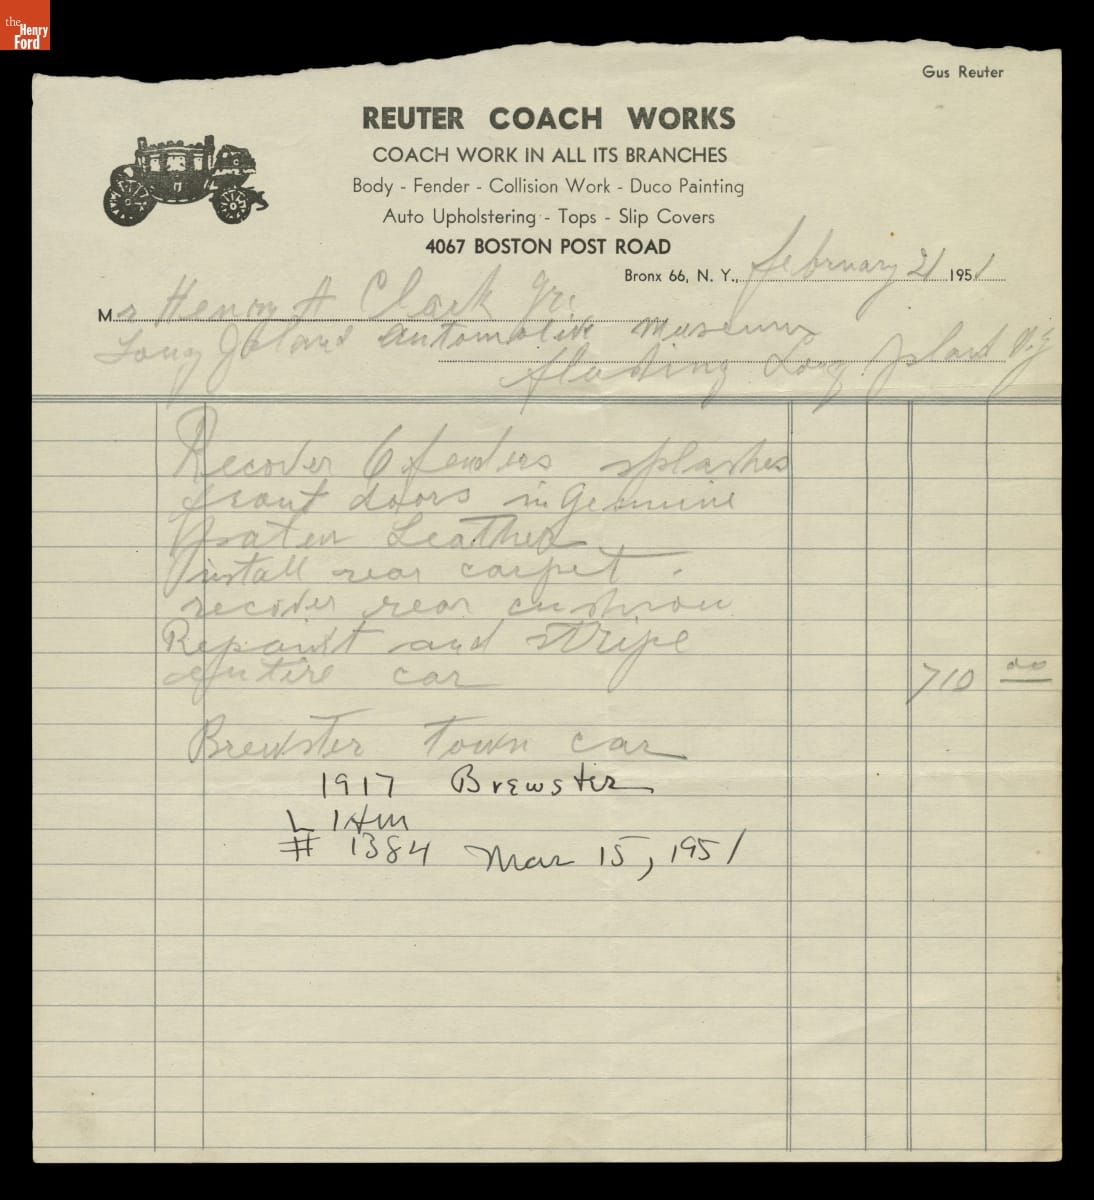 the
Henry
Ford
Gus Reuter
REUTER COACH WORKS
COACH WORK IN ALL ITS BRANCHES
Body - Fender - Collision Work - Duco Painting
Auto Upholstering - Tops - Slip Covers
4067 BOSTON POST ROAD
Bronx 66, N. Y., february 21 1951
Mr Henry A Clark Jr.
Long Island Automotiv museum
flushing Long Island N.Y
Recover 6 fenders splashes
front doors in Genuine
Paten Leather
install rear carpet.
recover rear cushion
Repaint and stripe
entire car 710 00
Brewster town car
1917 Brewster
L
# 1384 Mar 15, 1951